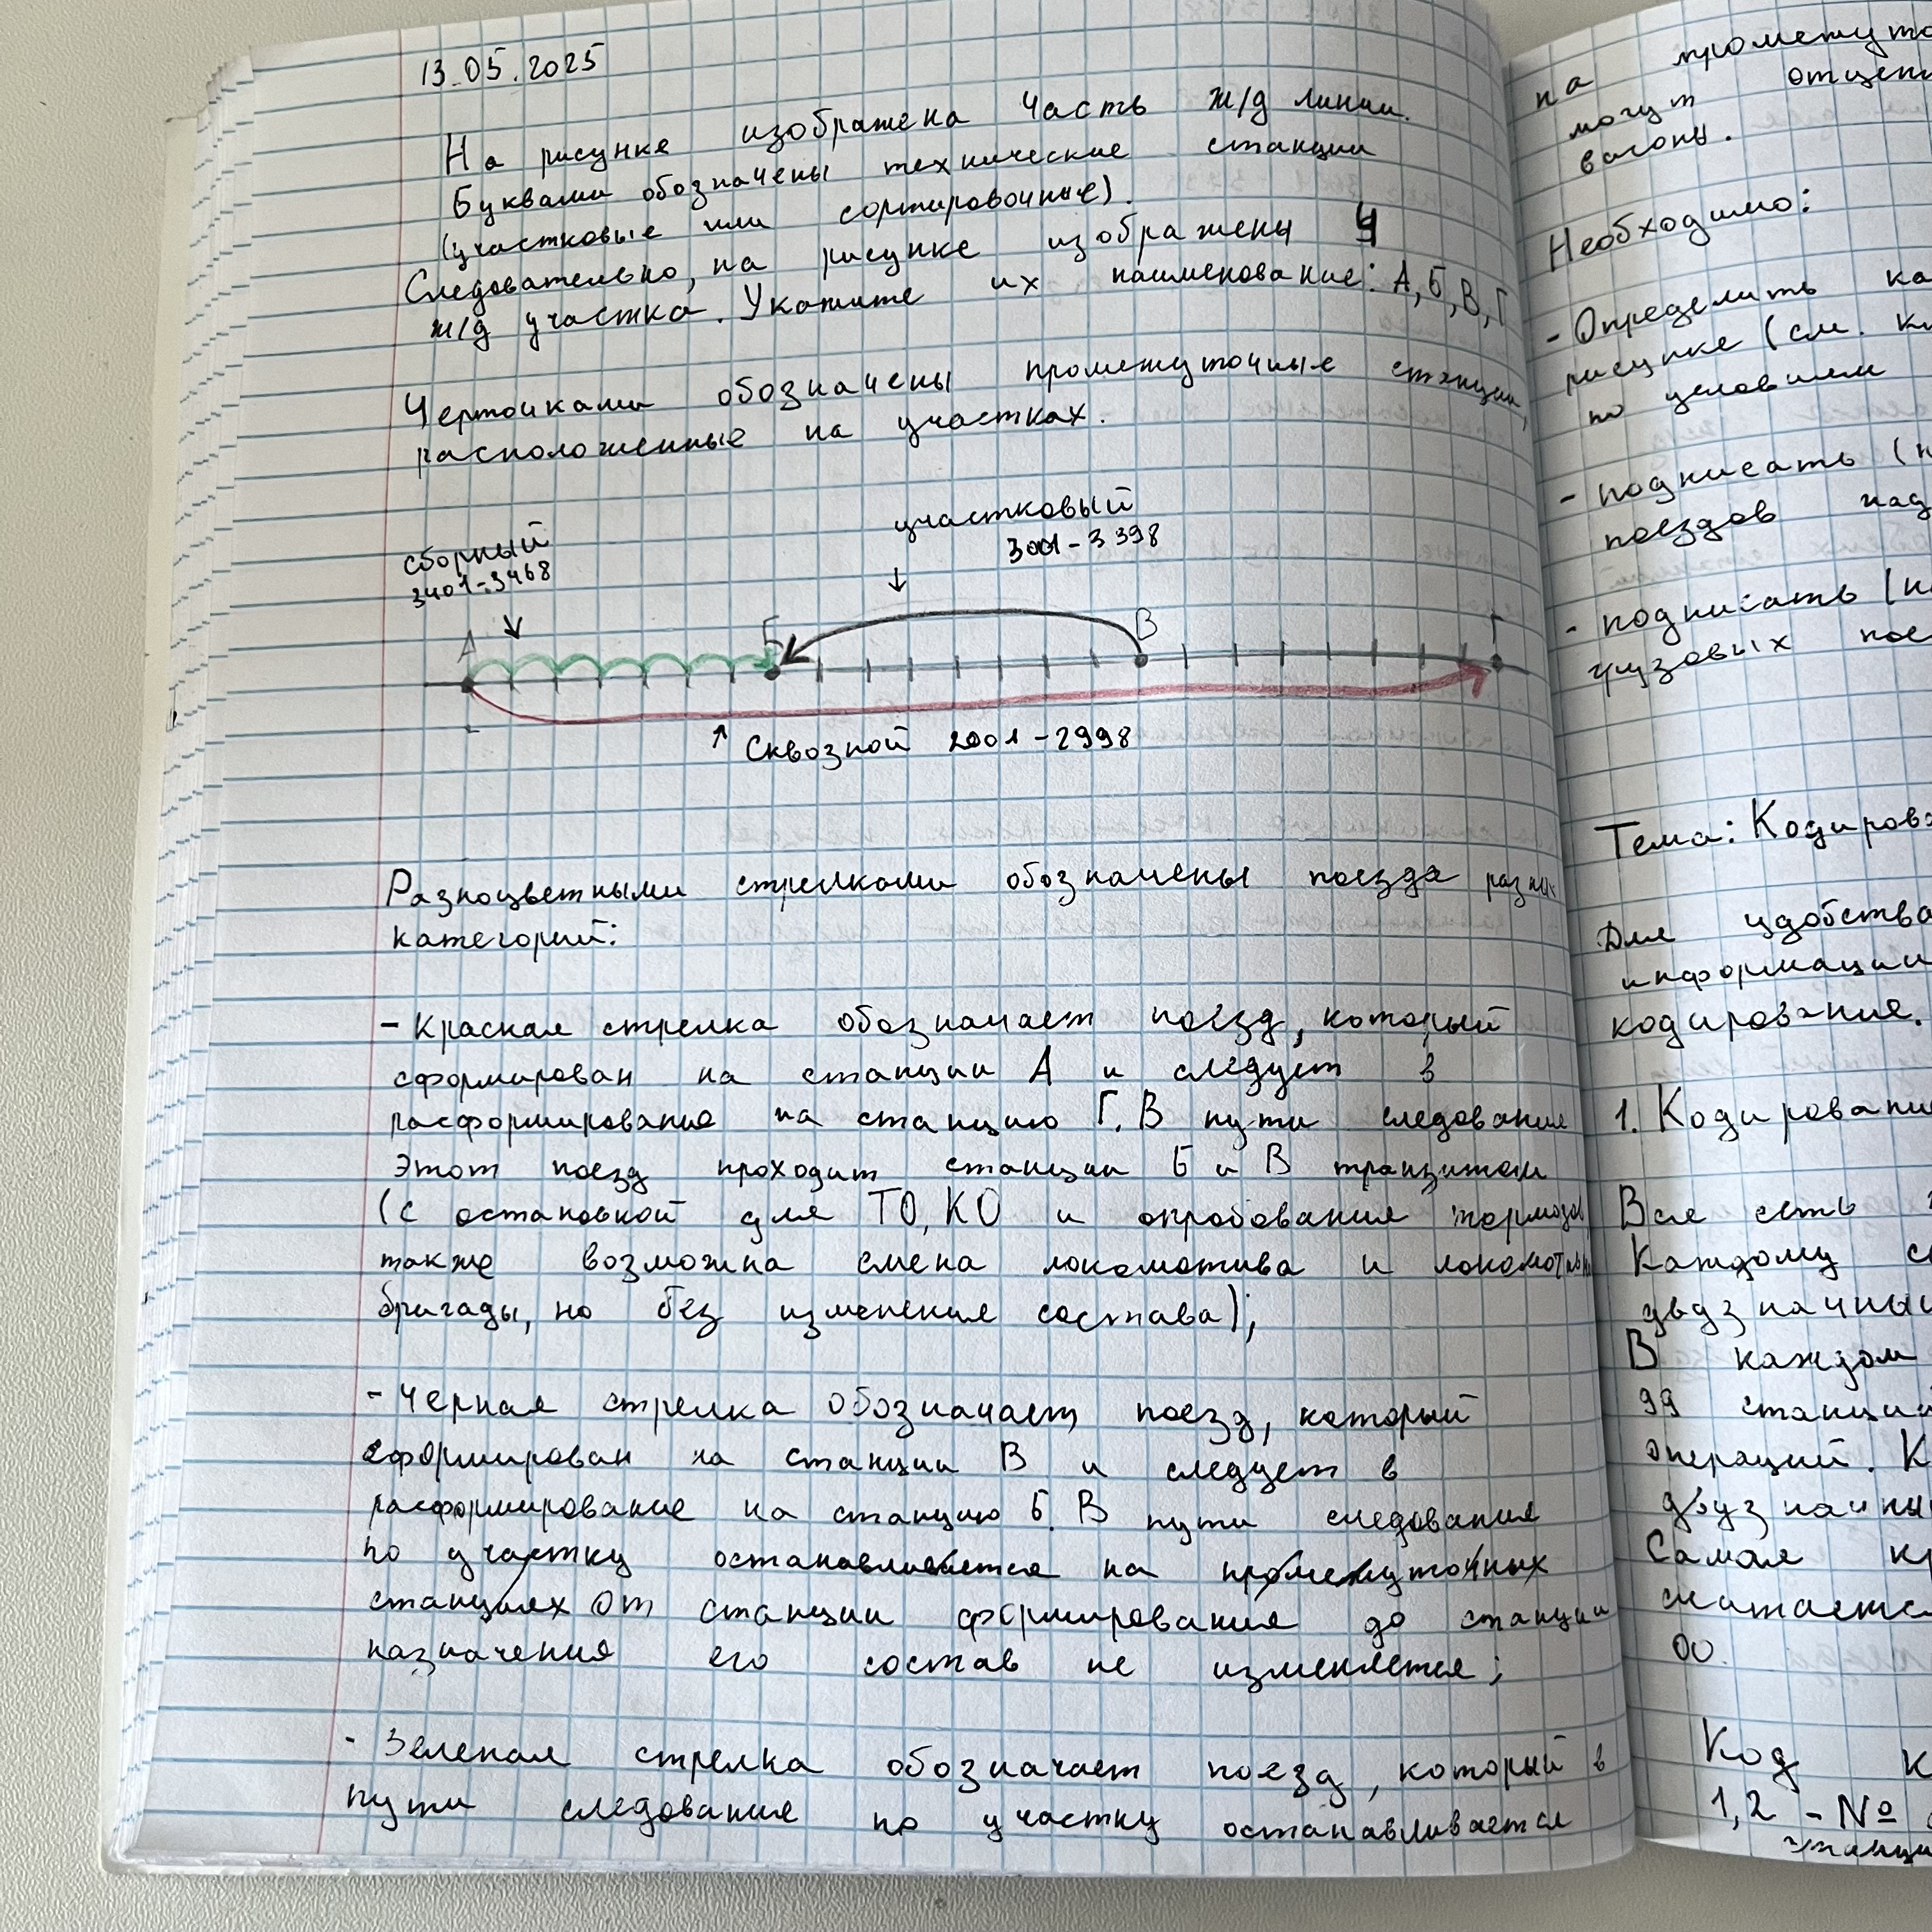 13.05.2025
На рисунке изображена часть ж/д линии.
Буквами обозначены технические станции
(участковые или сортировочные).
Следовательно, на рисунке изображены 4
ж/д участка. Укажите их наименование: А, Б, В, Г
Черточками обозначены промежуточные станции,
расположенные на участках.
участковый
3001-3398
сборный
3401-3468
А Б В Г
Сквозной 2001-2998
Разноцветными стрелками обозначены поезда разных
категорий:
- Красная стрелка обозначает поезд, который
сформирован на станции А и следует в
расформирование на станцию Г. В пути следования
этот поезд проходит станции Б и В транзитом
(с остановкой для ТО, КО и опробования тормозов,
также возможна смена локомотива и
бригады, но без изменения состава);
- Черная стрелка обозначает поезд, который
сформирован на станции В и следует в
расформирование на станцию Б. В пути следования
по участку останавливается на промежуточных
станциях От станции формирования до станции
назначения его состав не изменяется;
- Зеленая стрелка обозначает поезд, который в
пути следования по участку останавливается
на
могут
вагоны.
Необходимо:
- Определить
рисунке (см.
по условием
- подписать
поездов над
- подписать
грузовых
Тема:
Для удобства
информации
кодирование.
1.
Вся сеть
Каждому
двузначный
В каждом
99 станций
операций. К
Самая
считается
00.
Код
1,2 - №